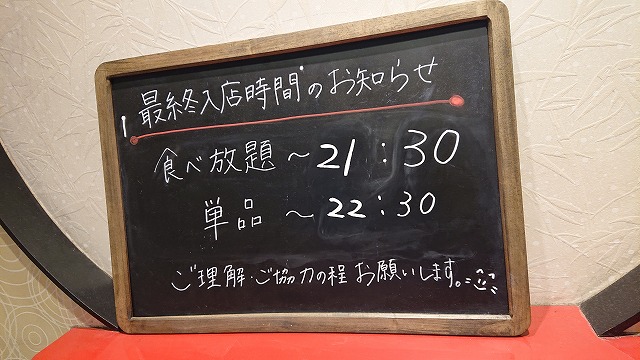 最終入店時間のお知らせ
食べ放題 ～21:30
単品 ～22:30
ご理解・ご協力の程 お願いします。